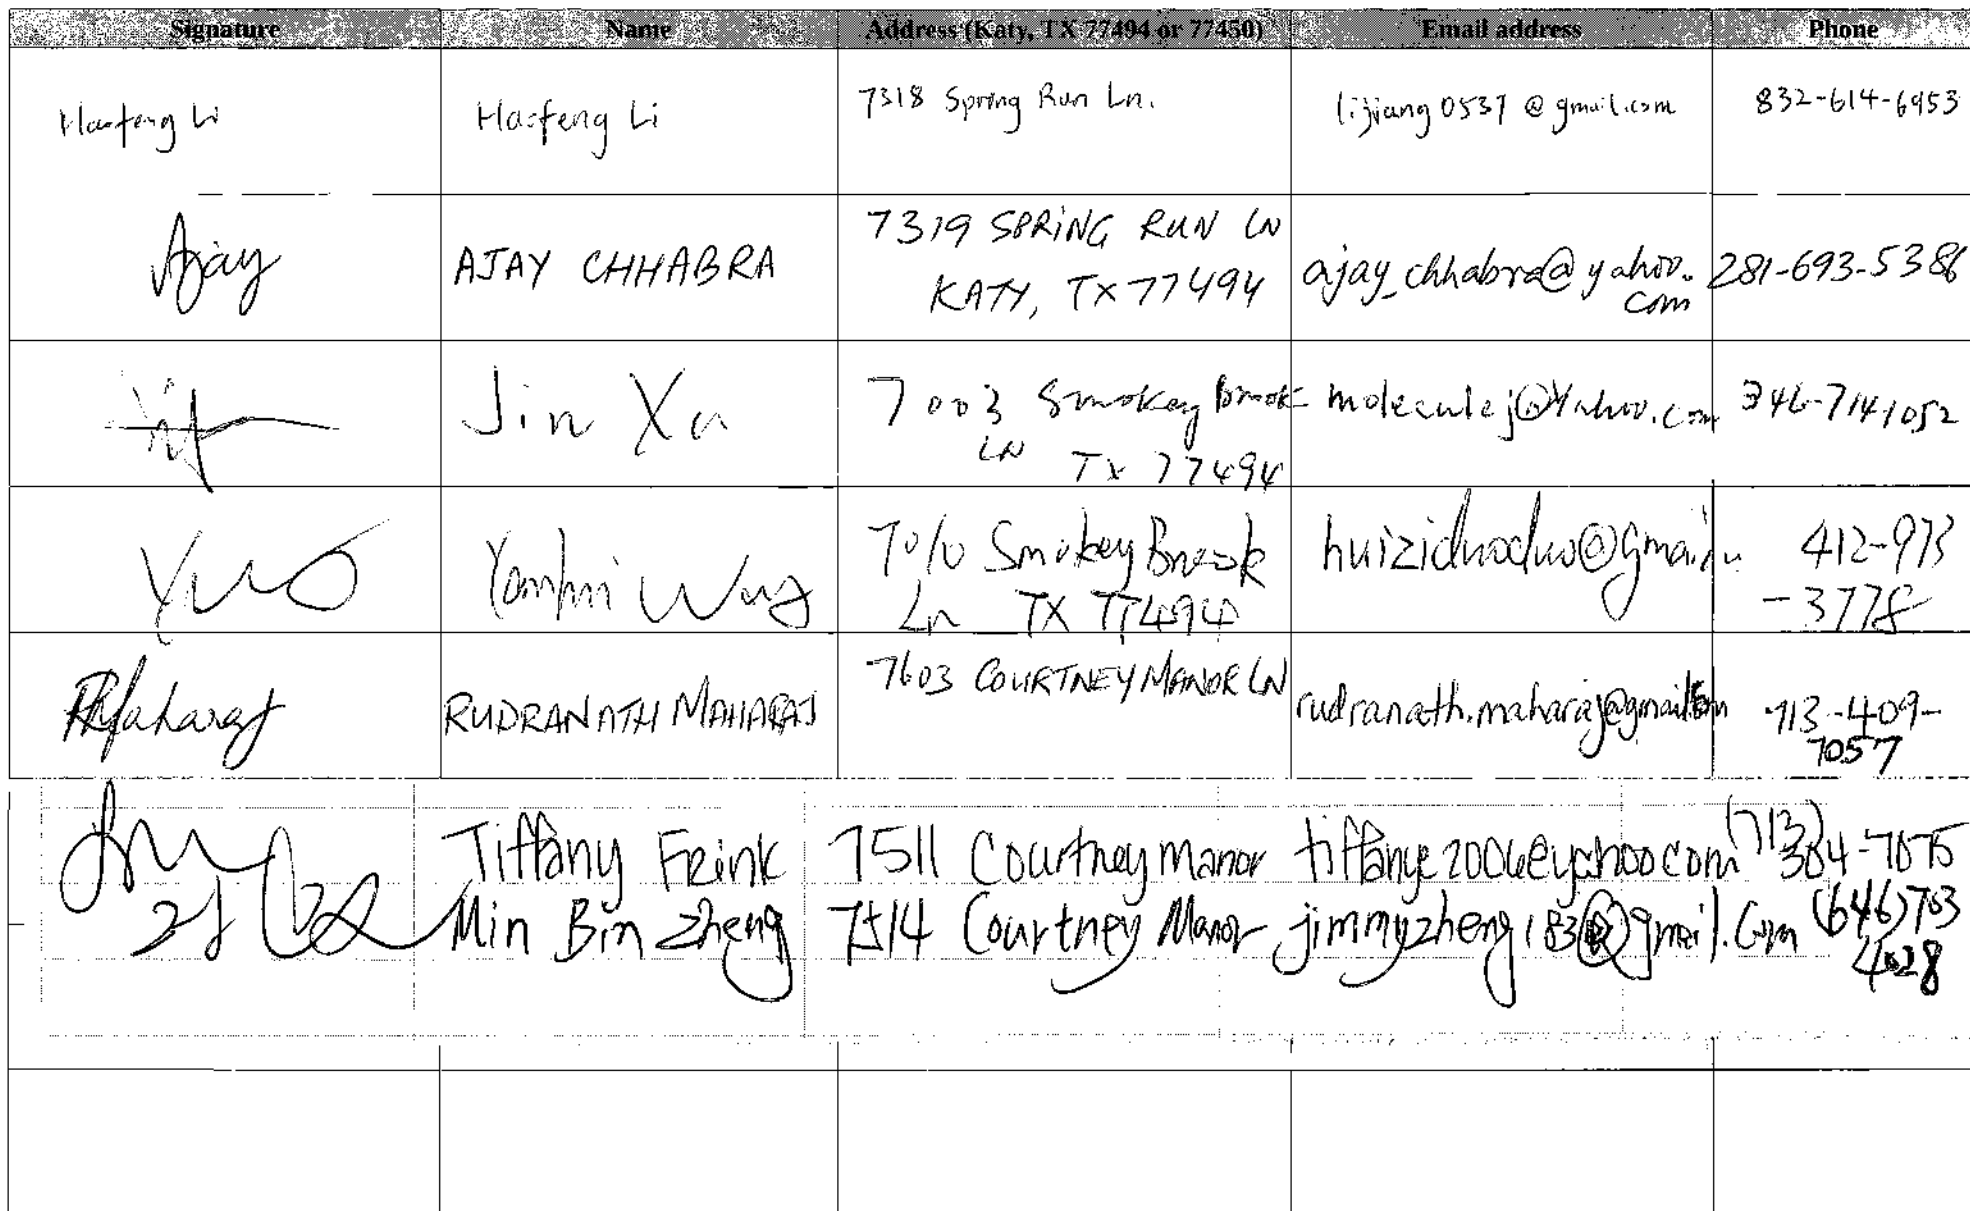 Signature Name Address (Katy, TX 77494 or 77450) Email address Phone
Haofeng Li Haofeng Li 7318 Spring Run Ln. lijiang0537@gmail.com 832-614-6953
Ajay AJAY CHHABRA 7319 SPRING RUN LN ajay_chhabra@yahoo. 281-693-5386
KATY, TX 77494 com
Jin Xu 7003 Smokey Brook moleculej@Yahoo.com 346-714-1052
LN TX 77494
7010 Smokey Brook huiziduoduo@gmail 412-973
Ln TX 77494 -3778
RMaharaj RUDRANATH MAHARAJ 7603 COURTNEY MANOR LN rudranath.maharaj@gmail.com 713-409-
7057
Tiffany Frink 7511 Courtney Manor tiffanye2006@yahoo.com (713) 304-7075
Min Bin Zheng 7514 Courtney Manor jimmyzheng183@gmail.com (646)703
4028